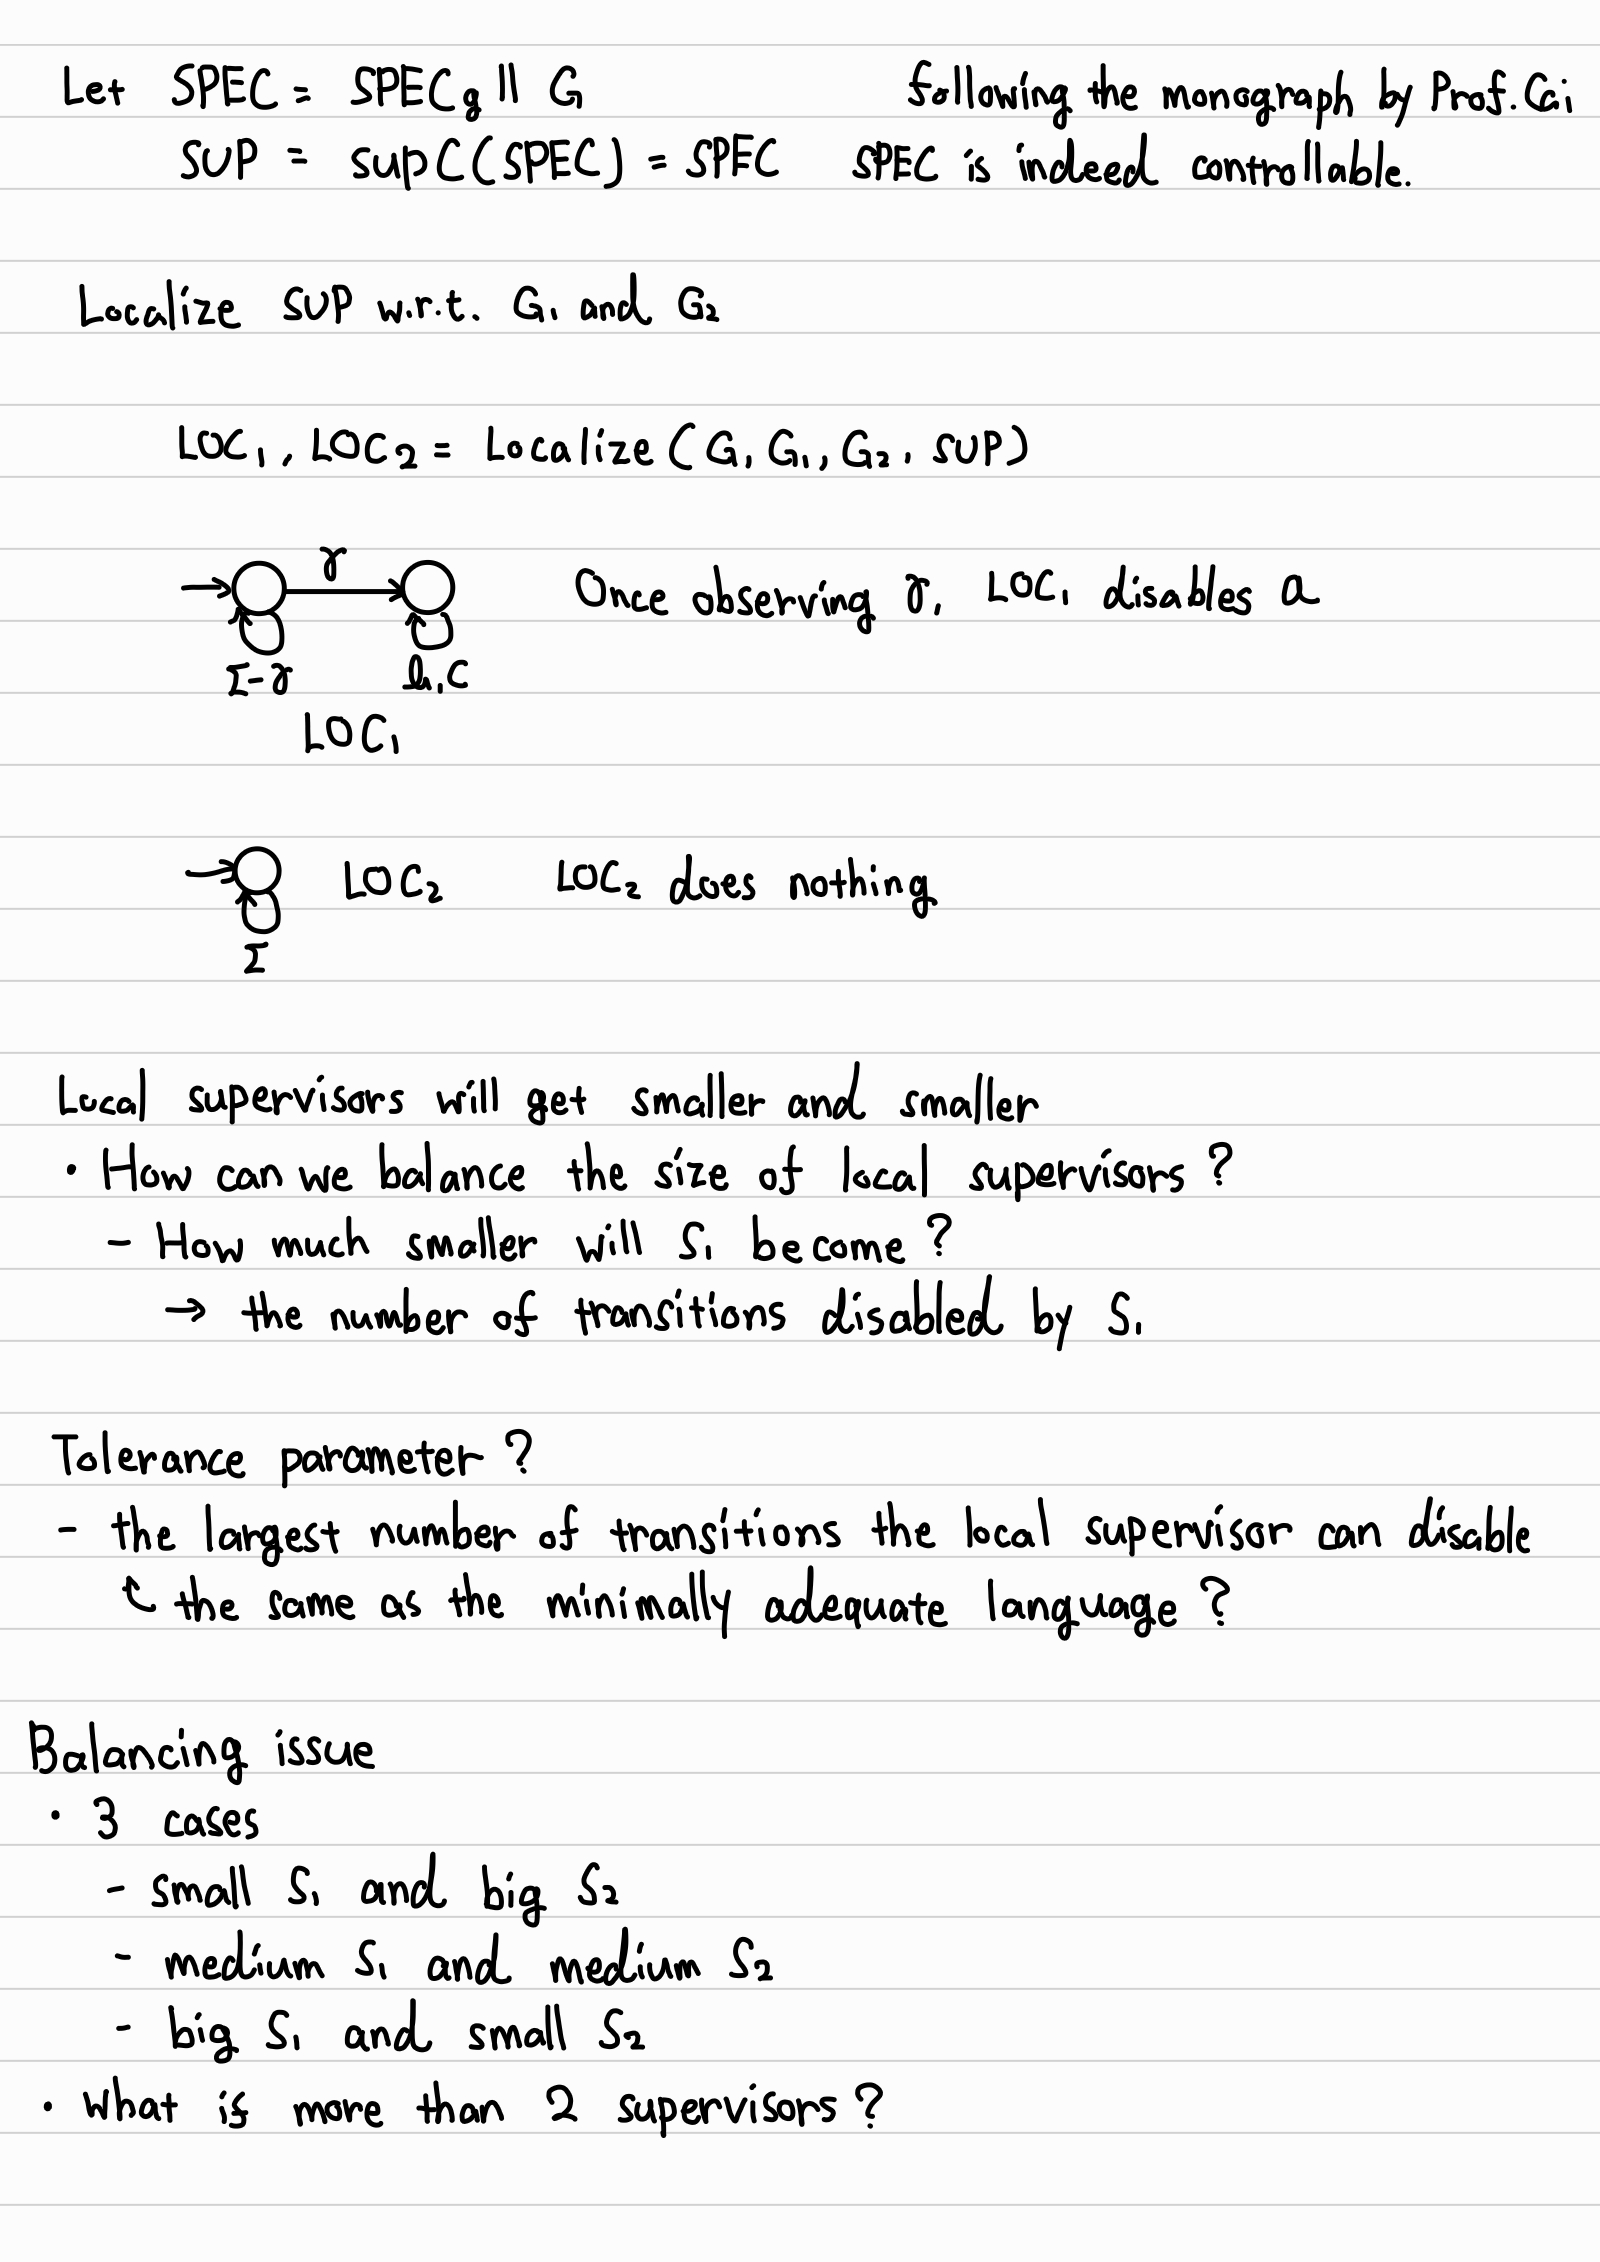 Let SPEC = SPECg || G following the monograph by Prof. Cai
SUP = supC(SPEC) = SPEC SPEC is indeed controllable.
Localize SUP w.r.t. G₁ and G₂
LOC₁, LOC₂ = Localize (G, G₁, G₂, SUP)
γ
Once observing γ, LOC₁ disables a
Σ-γ b,c
LOC₁
LOC₂ LOC₂ does nothing
Σ
Local supervisors will get smaller and smaller
• How can we balance the size of local supervisors?
- How much smaller will S₁ become?
→ the number of transitions disabled by S₁
Tolerance parameter?
- the largest number of transitions the local supervisor can disable
the same as the minimally adequate language?
Balancing issue
• 3 cases
- small S₁ and big S₂
- medium S₁ and medium S₂
- big S₁ and small S₂
• What if more than 2 supervisors?